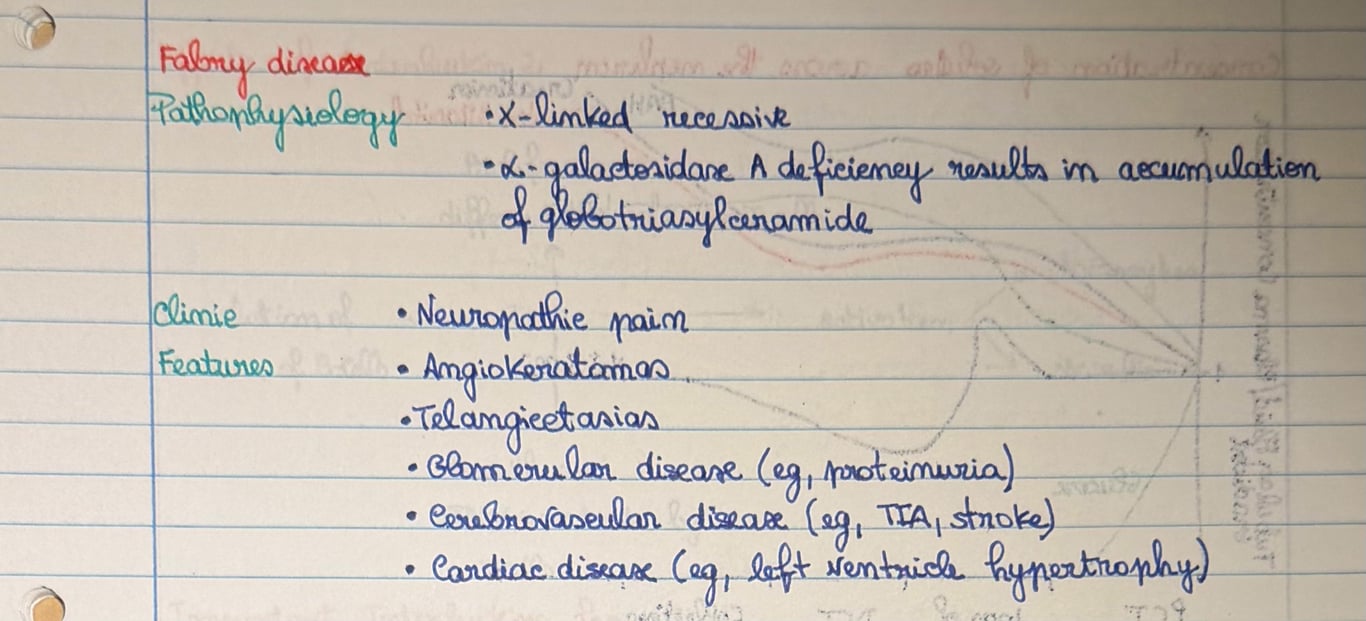 Fabry disease
Pathophysiology • X-linked recessive
• α-galactosidase A deficiency results in accumulation
of globotriasylceramide
Clinic • Neuropathic pain
Features • Angiokeratomas
• Telangiectasias
• Glomerular disease (eg, proteinuria)
• Cerebrovascular disease (eg, TIA, stroke)
• Cardiac disease (eg, left ventricle hypertrophy)